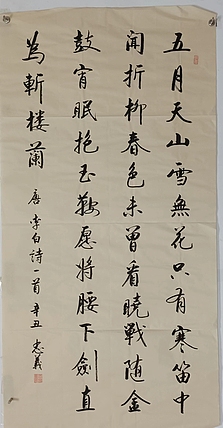 五月天山雪無花只有寒笛中
聞折柳春色未曾看曉戰随金
鼓宵眠抱玉鞍愿将腰下劍直
為斬楼蘭
唐李白詩一首辛丑忠義